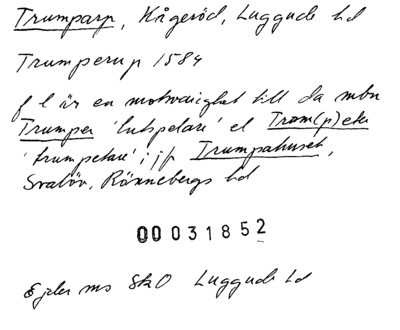 Trumparp, Kågeröd, Luggude hd
Trumperup 1584
f l är en motsvarighet till da mbn
Trumper 'lutspelare' el Trom(p)eter
'trumpetare'; jfr Trumpahuset,
Svalöv, Rönnebergs hd
00031852
Ejder ms SkO Luggude hd